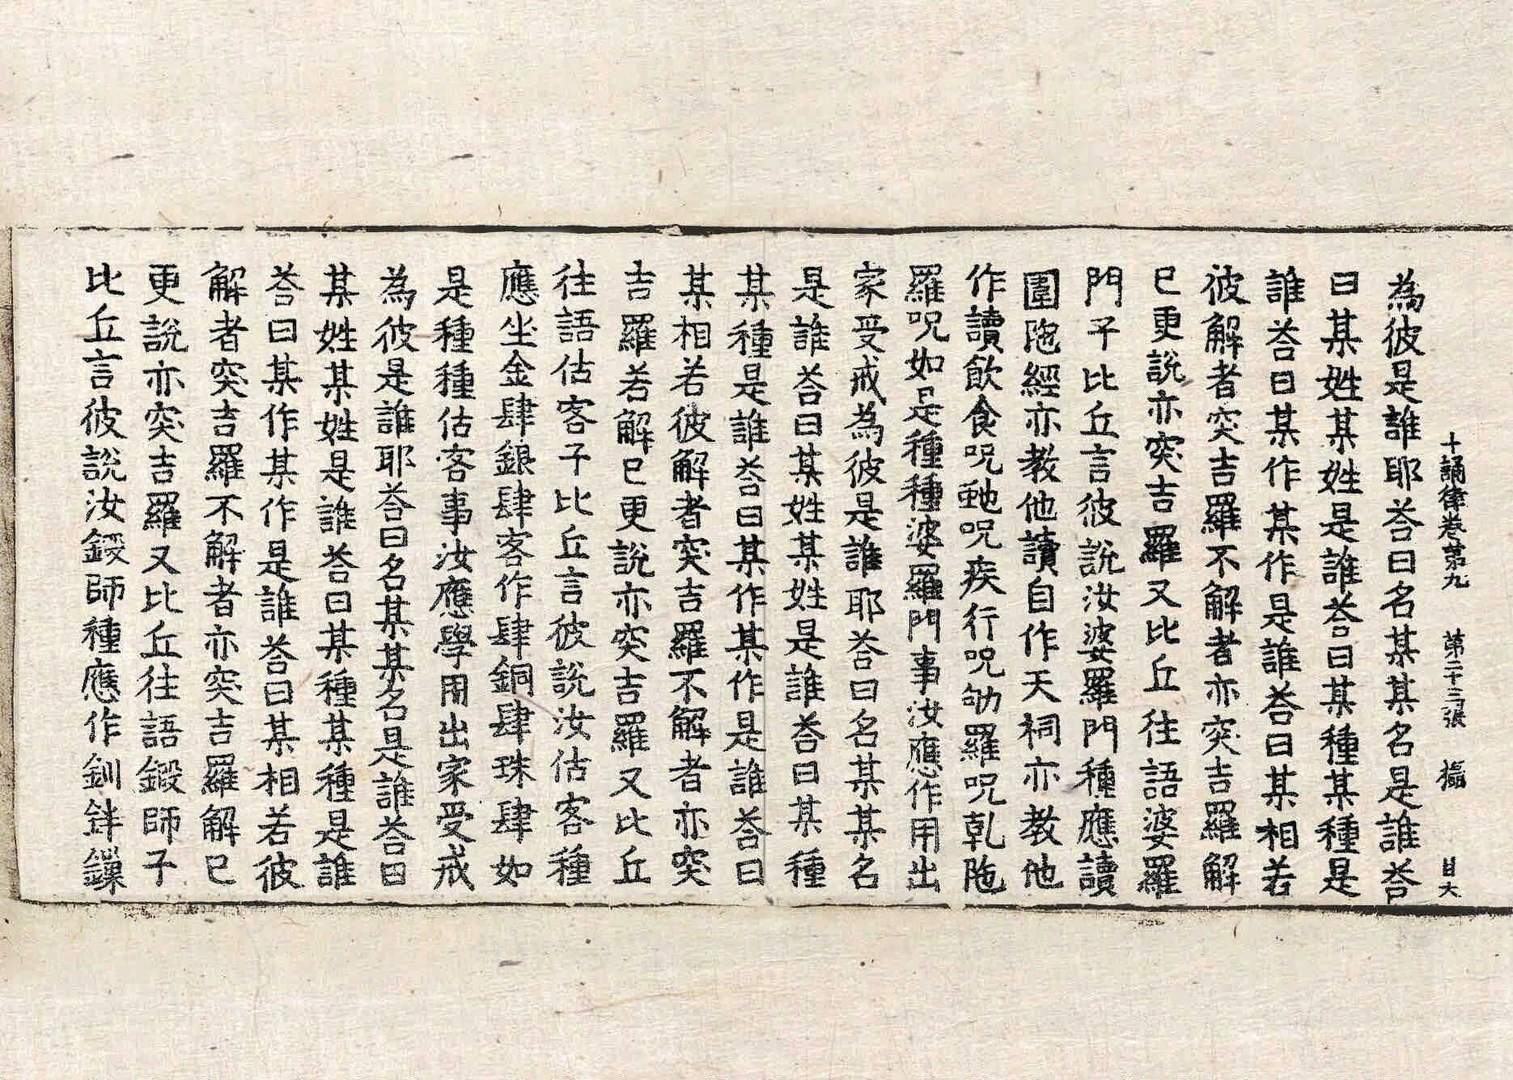 十誦律卷第九　第二十三張　攝　甘大
為彼是誰耶荅曰名某某名是誰荅
曰某姓某姓是誰荅曰某種某種是
誰荅曰某作某作是誰荅曰某相若
彼解者突吉羅不解者亦突吉羅解
已更說亦突吉羅又比丘往語婆羅
門子比丘言彼說汝婆羅門種應讀
圍陁經亦教他讀自作天祠亦教他
作讀飲食呪虵呪疾行呪劬羅呪乹陁
羅呪如是種種婆羅門事汝應作用出
家受戒為彼是誰耶荅曰名某某名
是誰荅曰某姓某姓是誰荅曰某種
某種是誰荅曰某作某作是誰荅曰
某相若彼解者突吉羅不解者亦突
吉羅若解已更說亦突吉羅又比丘
往語估客子比丘言彼說汝估客種
應坐金肆銀肆客作肆銅肆珠肆如
是種種估客事汝應學用出家受戒
為彼是誰耶荅曰名某某名是誰荅曰
某姓某姓是誰荅曰某種某種是誰
荅曰某作某作是誰荅曰某相若彼
解者突吉羅不解者亦突吉羅解已
更說亦突吉羅又比丘往語鍛師子
比丘言彼說汝鍛師種應作釧鉡鏁